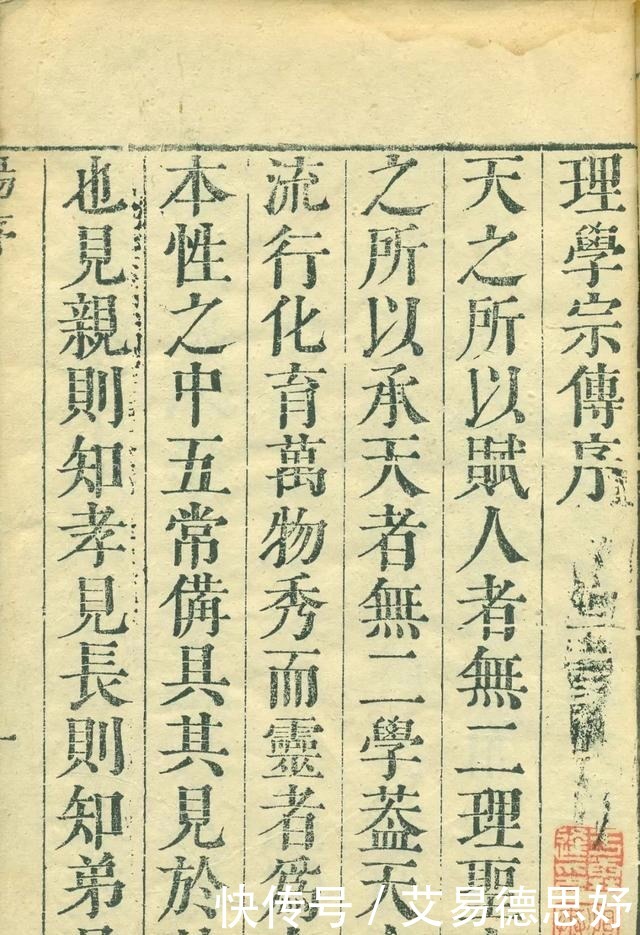 理學宗傳序
天之所以賦人者無二理聖
之所以承天者無二學葢天
流行化育萬物秀而靈者爲
本性之中五常備具其見於
也見親則知孝見長則知弟
湯序
一
快传号/艾易德思妤